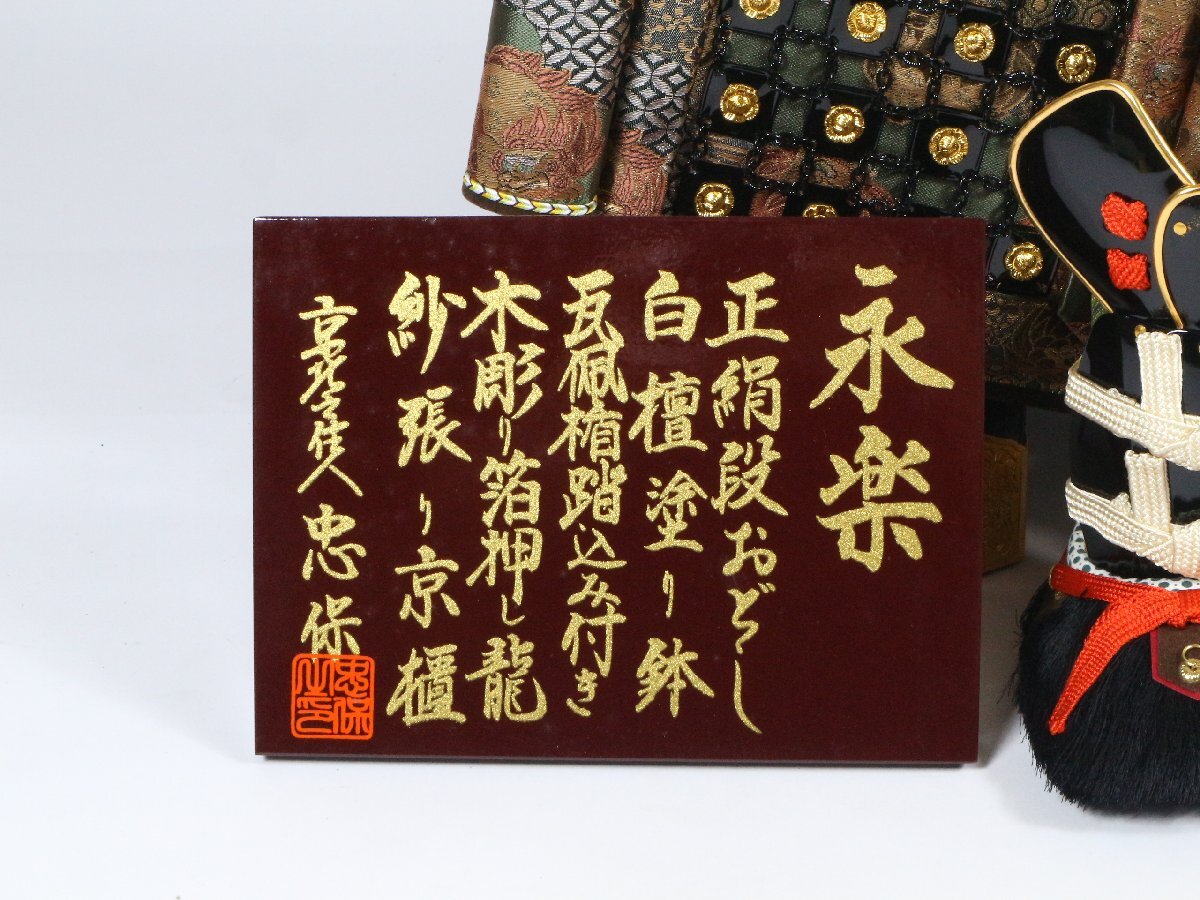 永楽
正絹段おどし
白檀塗り鉢
瓦佩楯踏込み付き
木彫り箔押し龍
紗張り京櫃
忠保
忠保
之印